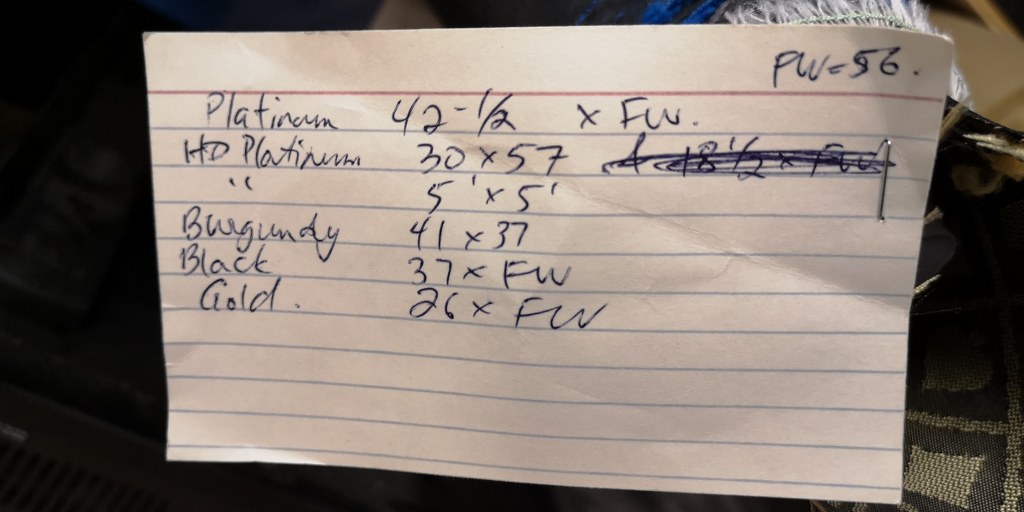 FW=56.
Platinum 42-1/2 x FW.
HD Platinum 30 x 57 & 18 1/2 x FW
" 5' x 5'
Burgundy 41 x 37
Black 37 x FW
Gold. 26 x FW